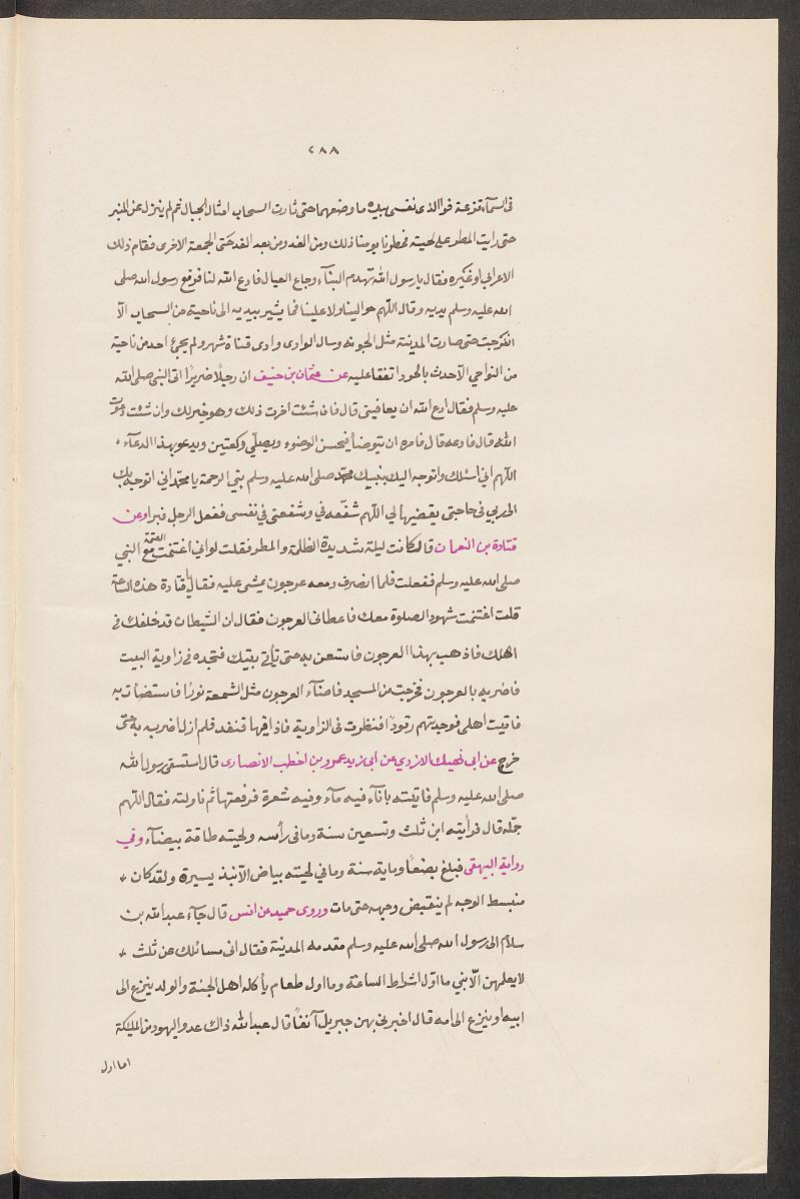 ٢٨٨
فى السمآء قزعة فوالذى نفسى بيده ما وضعهما حتى ثارت السحاب امثال الجبال ثم لم ينزل عن المنبر
حتى رايت المطر على لحيته فمطرنا يومنا ذلك ومن الغد ومن بعد الغد حتى الجمعة الاخرى فقام ذلك
الاعرابي او غيره فقال يا رسول الله تهدم البنآء وجاع العيال فادع الله لنا فرفع رسول الله صلى
الله عليه وسلم يديه وقال اللهم حوالينا ولا علينا فما يشير بيديه الى ناحية من السحاب الّا
انفرجت حتى صارت المدينة مثل الجوبة وسال الوادى وادى قناة شهر ولم يجئ احد من ناحية
من النواحي الّا حدث بالجود اتفقا عليه عن عثمان بن حنيف ان رجلًا ضريرًا اتى النبى صلى الله
عليه وسلم فقال ادع الله ان يعافينى قال فان شئت اخرت ذلك وهو خير لك وان شئت دعوت
الله قال فادعه قال فامره ان يتوضأ فيحسن الوضوء ويصلّي ركعتين ويدعو بهذا الدعآء
اللهم اني اسئلك واتوجه اليك بنبيك محمّد صلى الله عليه وسلم نبي الرحمة يا محمّد اني اتوجه بك
الى ربي فى حاجتى يقضيها لي اللهم شفّعه في وشفعنى في نفسى ففعل الرجل فبرا وعن
قتادة بن النعمان قال كانت ليلة شديدة الظلمة والمطر فقلت لو اني اغتنمت العتمة مع النبي
صلى الله عليه وسلم ففعلت فلما انصرف ومعه عرجون يمشى عليه فقال يا قتادة هذه الساعة
قلت اغتنمت شهود الصلوة معك فاعطانى العرجون فقال ان الشيطان قد خلفك فى
اهلك فاذهب بهذا العرجون فاستعن به حتى تأتي بيتك فتجده فى زاوية البيت
فاضربه بالعرجون فخرجت من المسجد فاضآء العرجون مثل الشمعة نورًا فاستضأت به
فاتيت اهلى فوجدتهم رقودًا فنظرت فى الزاوية فاذا فيها قنفد فلم ازل اضربه به حتى
خرج عن ابى نهيك الازدي عن ابى زيد عمرو بن اخطب الانصارى قال استسقى رسول الله
صلى الله عليه وسلم فاتيته بانآء فيه مآء وفيه شعرة فرفعتها ثم ناولته فقال اللهم
جمّله قال فرأيته ابن ثلث وتسعين سنة وما في رأسه ولحيته طاقة بيضآء وفي
رواية البيهقى فبلغ بضعًا وماية سنة وما في لحيته بياض الّا نبذ يسيرة ولقد كان
منبسط الوجه لم ينقبض وجهه حتى مات وروى حميد عن انس قال جآء عبد الله بن
سلام الى رسول الله صلى الله عليه وسلم مقدمه المدينة فقال انى مسائلك عن ثلث
لا يعلمهن الّا نبي ما اوّل اشراط الساعة وما اول طعام يأكله اهل الجنة والولد ينزع الى
ابيه او ينزع الى امه قال اخبرنى بهن جبريل آنفًا قال عبد الله ذاك عدو اليهود من المليكة
اما اول